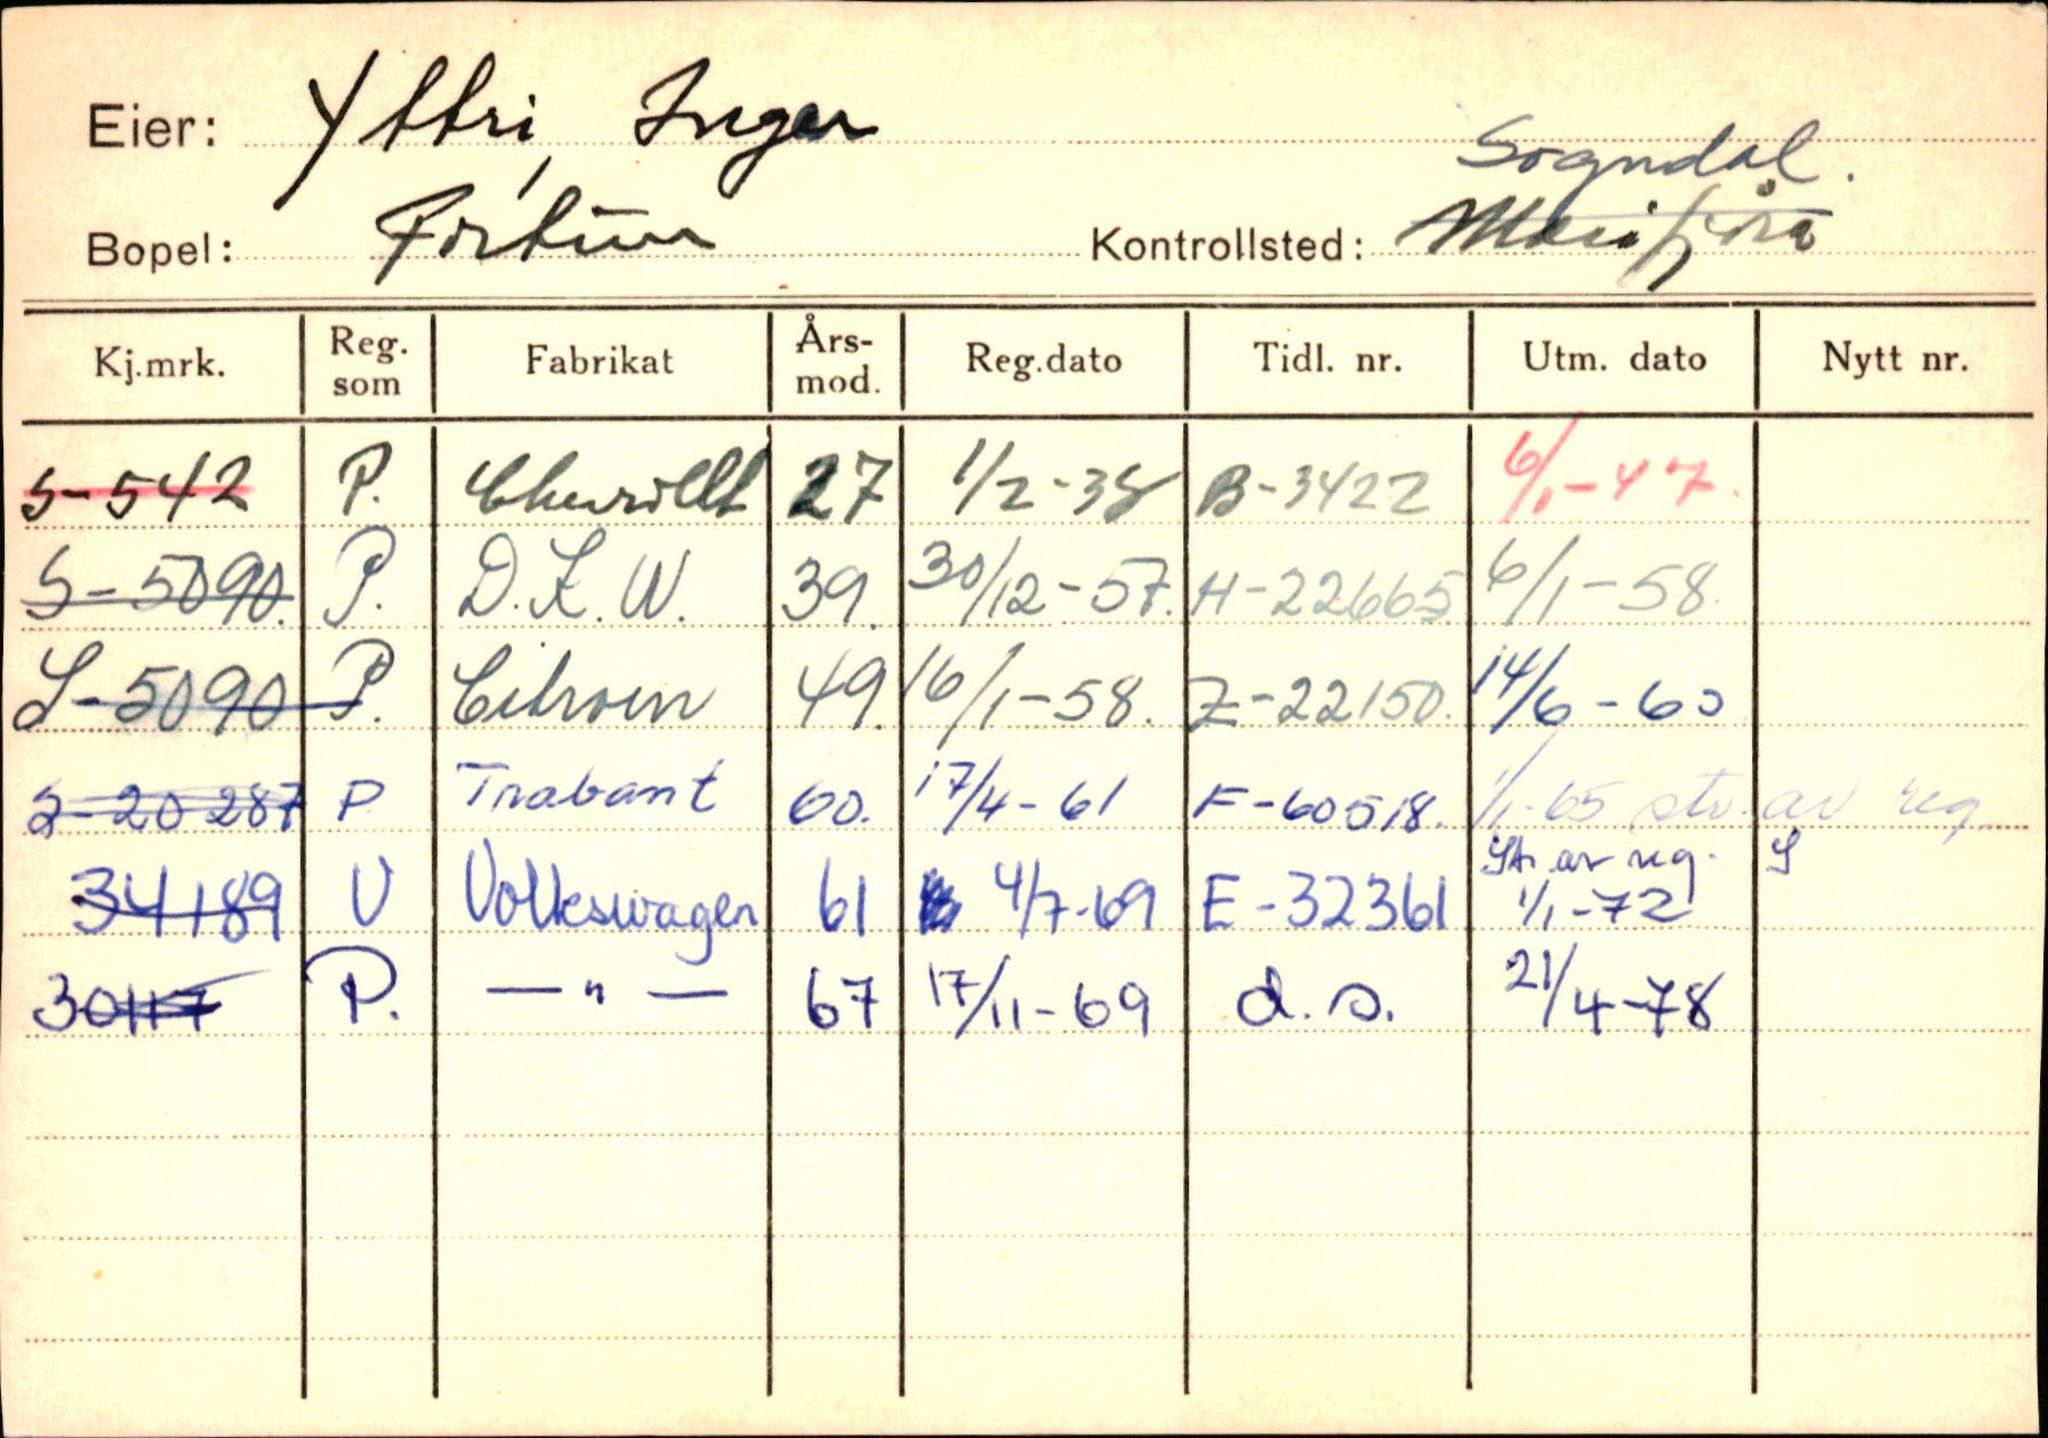 Eier: Yttri, Inger
Sogndal.
Bopel: Fortun Kontrollsted: Marifjöra
Kj.mrk. Reg. som Fabrikat Års-mod. Reg.dato Tidl. nr. Utm. dato Nytt nr.
S-542 P. Chevrollt 27 1/2-38 B-3422 6/1-47.
S-5090. P. D.K.W. 39. 30/12-57. H-22665 6/1-58.
S-5090 P. Citroen 49. 16/1-58. Z-22150. 14/6-60
S-20287 P Trabant 60. 17/4-61 F-60518. 1/1-65 str. av reg
34189 V Volkswagen 61 4/7-69 E-32361 Str. av reg. 1/1-72 S
30117 P. —"— 67 17/11-69 d.s. 21/4-78